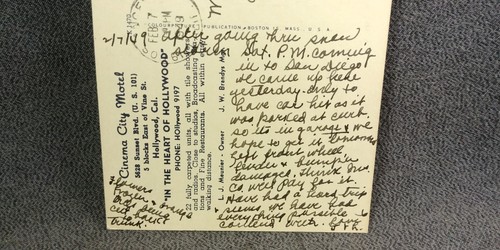 COLOURPICTURE PUBLICATION BOSTON 15, MASS., U.S.A.
FEB 7
2/7/49 After going thru snow
storm Sat. P.M. coming
in to San Diego
we came up here
yesterday only to
have car hit as it
was parked at curb.
so its in garage & we
hope to get it tomorrow
left front wheel
fender & bumper
damaged. Think Ins.
Co will pay for it.
Have had a hard trip
seems we have had
everything possible to
contend with. Love
Cinema City Motel
5628 Sunset Blvd. (U. S. 101)
5 blocks East of Vine St.
Hollywood, Cal.
"IN THE HEART OF HOLLYWOOD"
PHONE: Hollywood 9197
22 fully carpeted units, all with tile showers
and radios. Close to studios, Broadcasting
and Fine Restaurants. All within
walking distance.
L J. Meunier - Owner J. W. Brandys